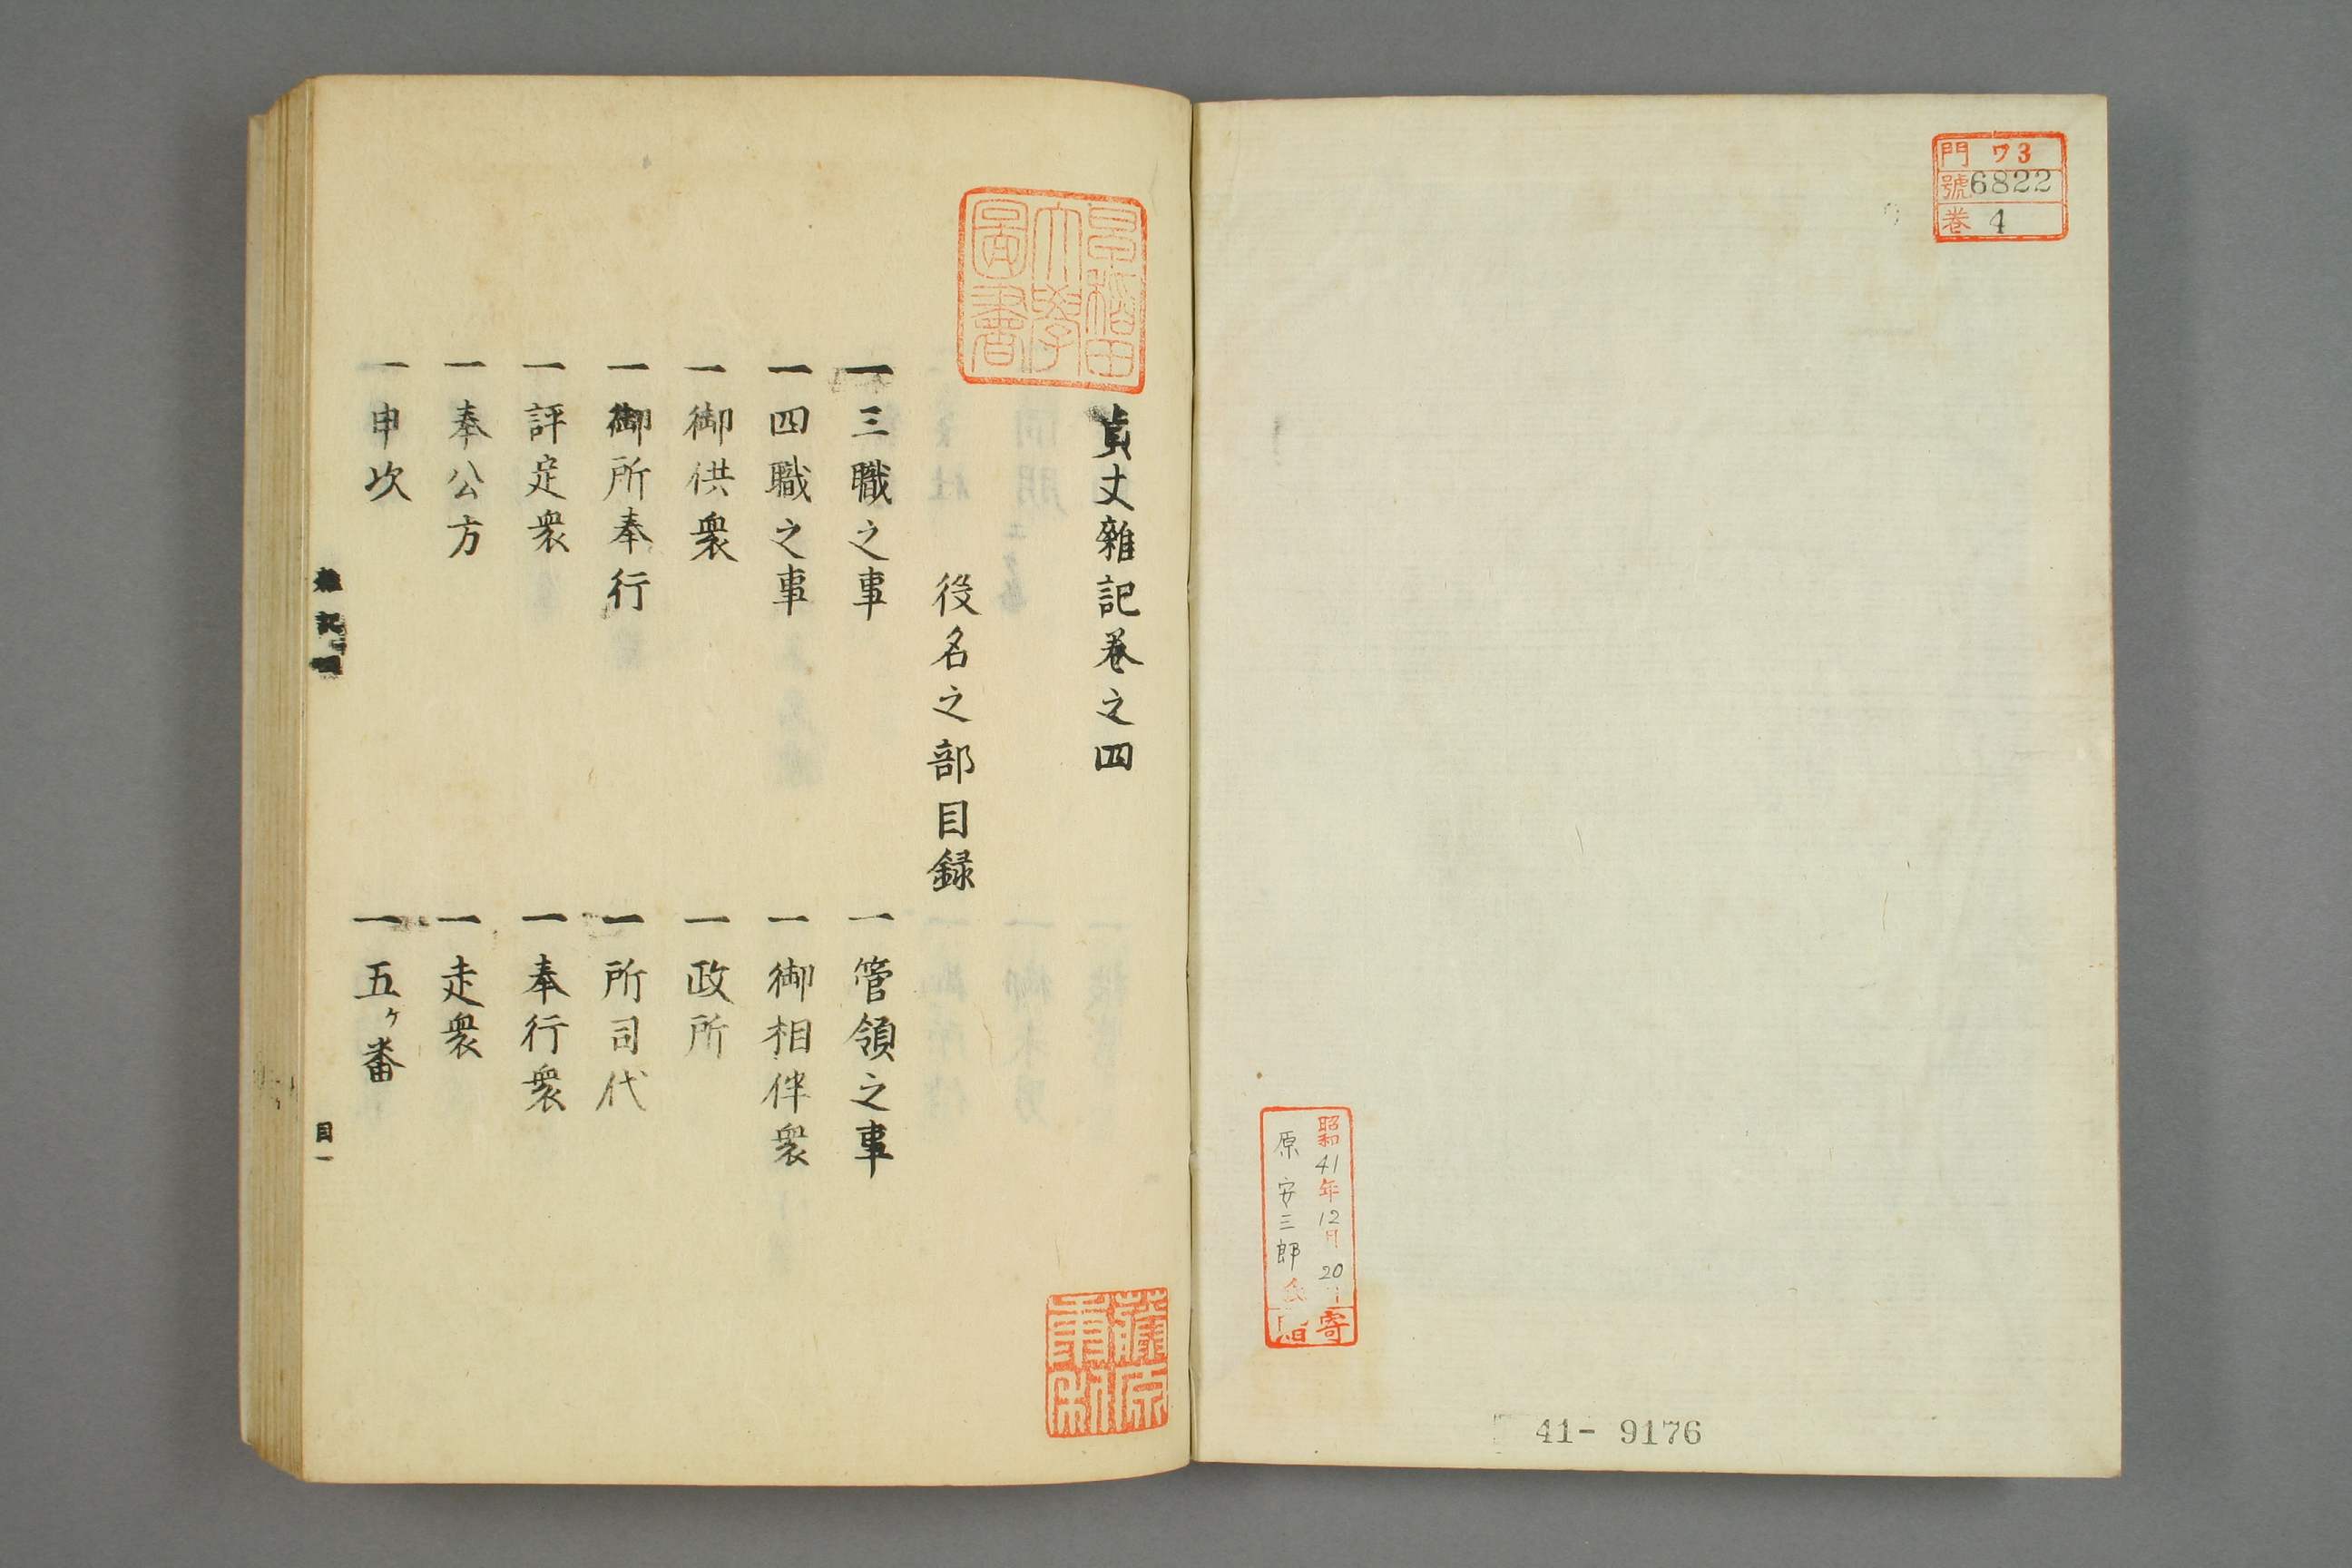 門 ワ3
號 6822
巻 4
昭和41年12月20日
原安三郎氏
寄贈
41- 9176
早稲田大學圖書
貞丈雜記巻之四
役名之部目録
一三職之事
一管領之事
一四職之事
一御相伴衆
一御供衆
一政所
一御所奉行
一所司代
一評定衆
一奉行衆
一奉公方
一走衆
一申次
一五ヶ番
雜記
目一